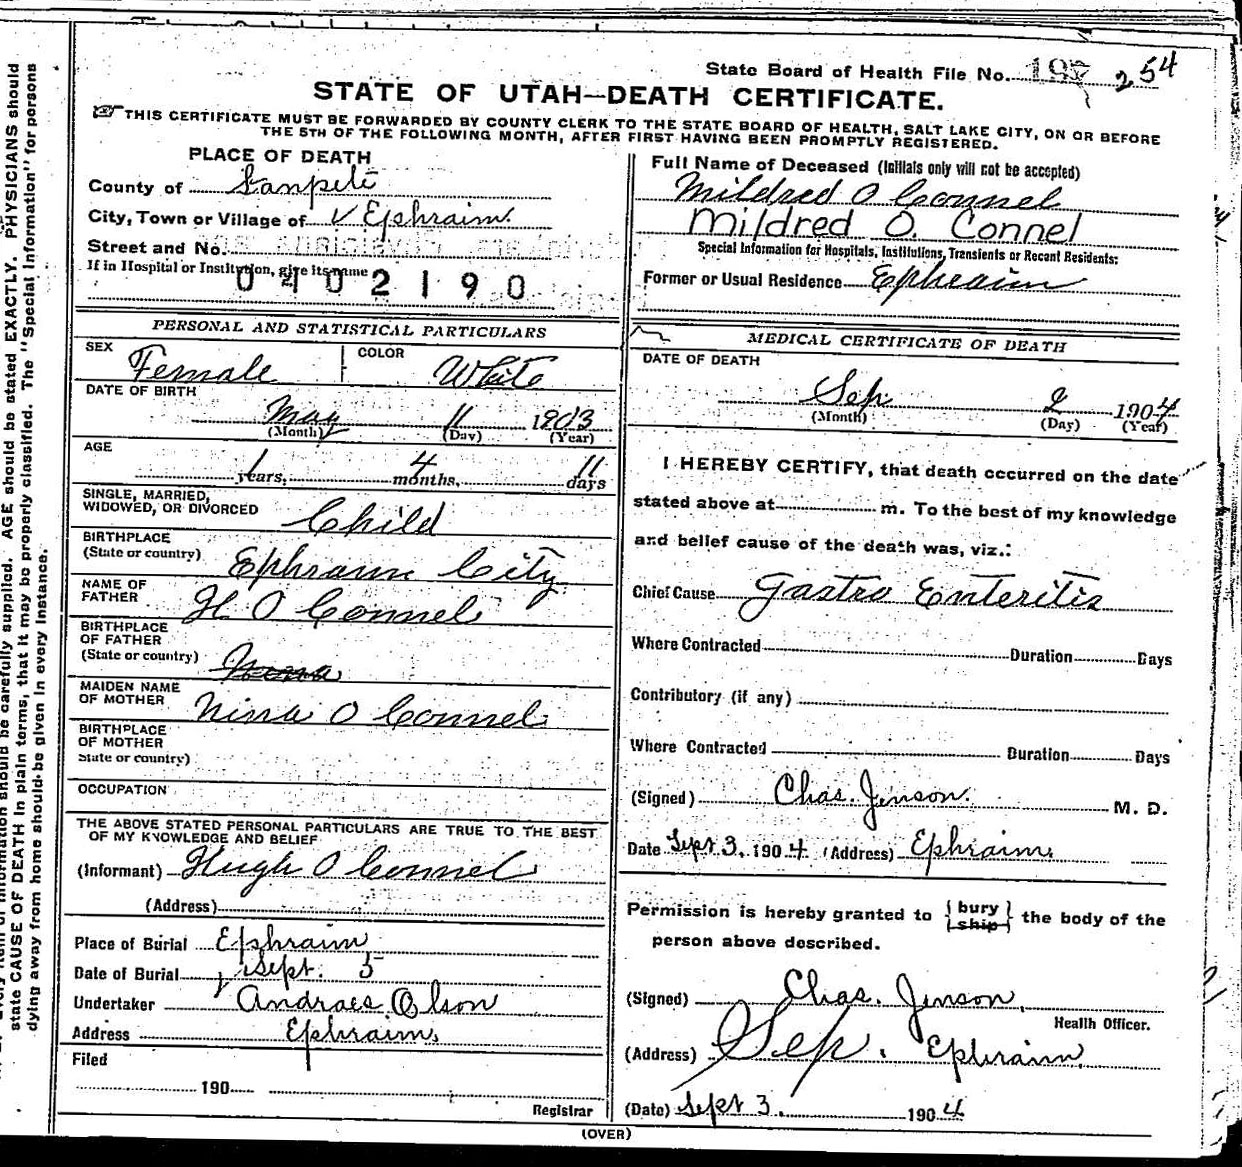 State Board of Health File No. 197 254
STATE OF UTAH—DEATH CERTIFICATE.
THIS CERTIFICATE MUST BE FORWARDED BY COUNTY CLERK TO THE STATE BOARD OF HEALTH, SALT LAKE CITY, ON OR BEFORE
THE 5TH OF THE FOLLOWING MONTH, AFTER FIRST HAVING BEEN PROMPTLY REGISTERED.
PLACE OF DEATH
County of Sanpete
City, Town or Village of Ephraim
Street and No.
If in Hospital or Institution, give its name
0402190
Full Name of Deceased (Initials only will not be accepted)
Mildred O Connel
Mildred O. Connel
Special Information for Hospitals, Institutions, Transients or Recent Residents:
Former or Usual Residence Ephraim
PERSONAL AND STATISTICAL PARTICULARS
SEX Female
COLOR White
DATE OF BIRTH
May 11 1903
(Month) (Day) (Year)
AGE
1 years, 4 months, 11 days
SINGLE, MARRIED,
WIDOWED, OR DIVORCED Child
BIRTHPLACE
(State or country) Ephraim City
NAME OF
FATHER H O Connel
BIRTHPLACE
OF FATHER
(State or country) Nena
MAIDEN NAME
OF MOTHER Nina O Connel
BIRTHPLACE
OF MOTHER
State or country)
OCCUPATION
THE ABOVE STATED PERSONAL PARTICULARS ARE TRUE TO THE BEST
OF MY KNOWLEDGE AND BELIEF
(Informant) Hugh O Connel
(Address)
Place of Burial Ephraim
Date of Burial Sept. 5
Undertaker Andraes Olson
Address Ephraim
Filed
190
Registrar
MEDICAL CERTIFICATE OF DEATH
DATE OF DEATH
Sep 2 1904
(Month) (Day) (Year)
I HEREBY CERTIFY, that death occurred on the date
stated above at m. To the best of my knowledge
and belief cause of the death was, viz.:
Chief Cause Gastro Enteritis
Where Contracted Duration Days
Contributory (if any)
Where Contracted Duration Days
(Signed) Chas. Jenson. M. D.
Date Sept 3, 1904 (Address) Ephraim
Permission is hereby granted to {bury
ship} the body of the
person above described.
(Signed) Chas. Jenson
Health Officer.
(Address) Sep. Ephraim
(Date) Sept 3. 1904
(OVER)
information should be carefully supplied. AGE should be stated EXACTLY. PHYSICIANS should
state CAUSE OF DEATH in plain terms, that it may be properly classified. The "Special Information" for persons
dying away from home should be given in every instance.